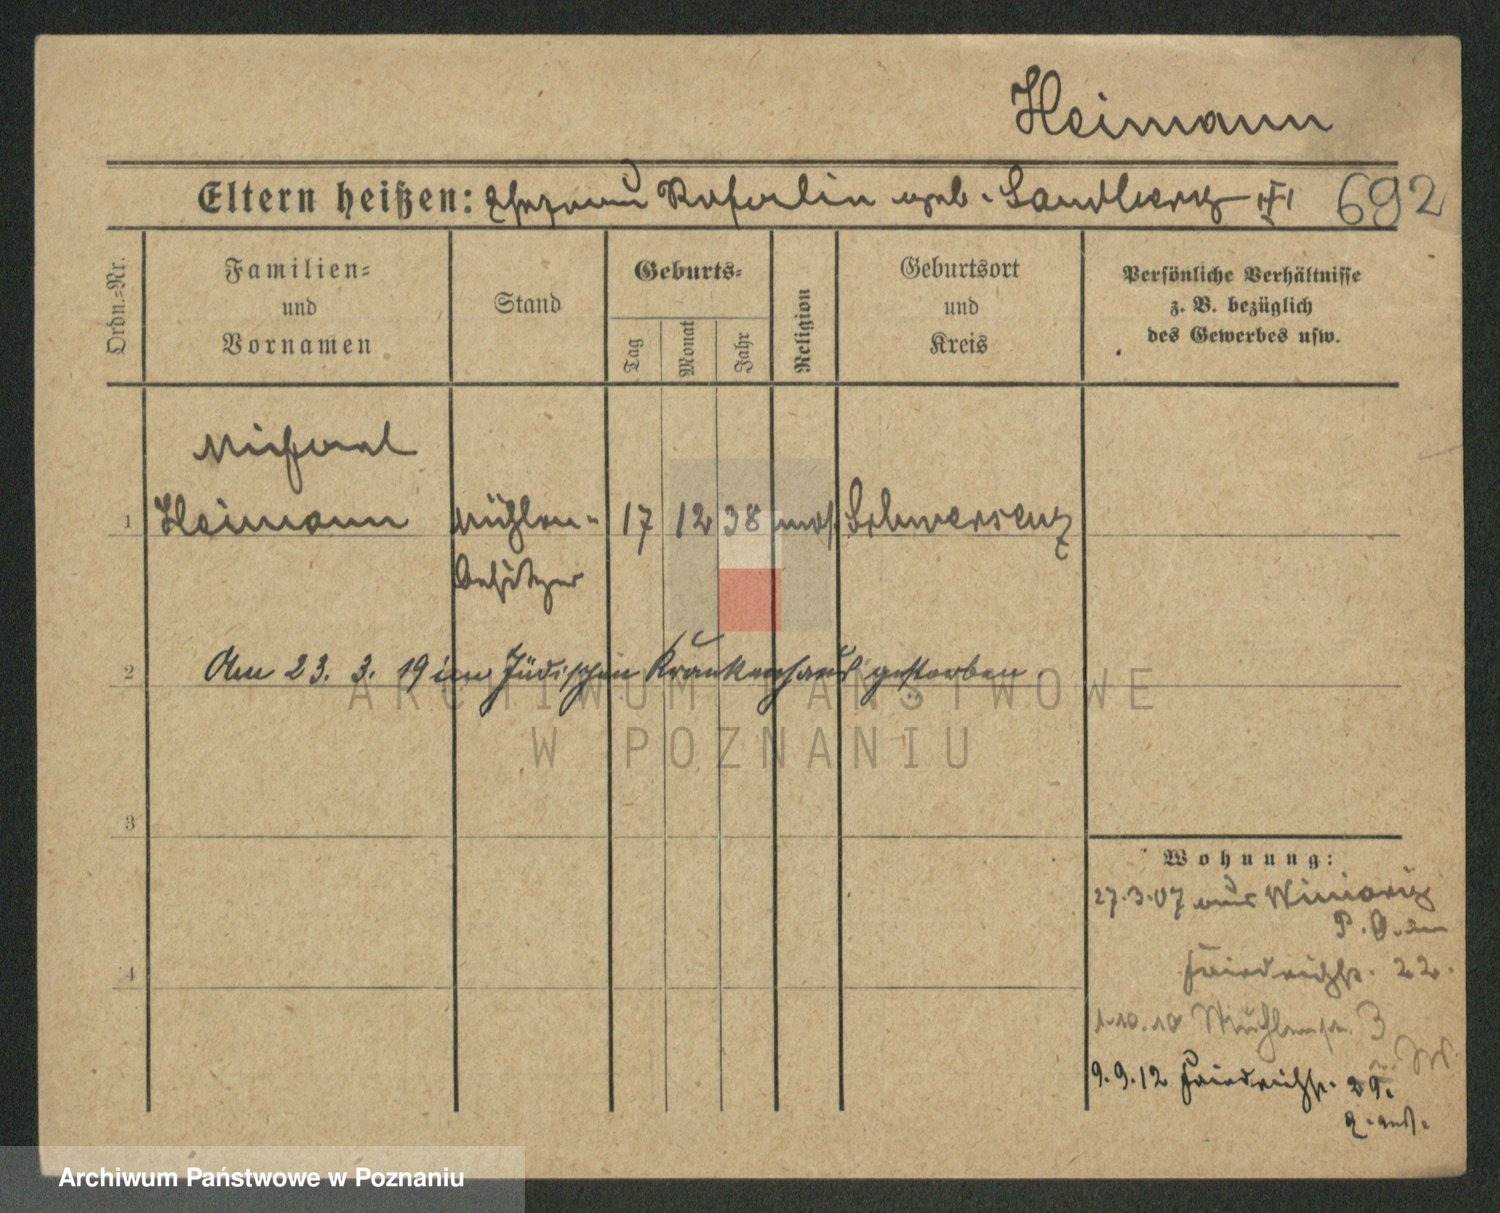 Heimann
Eltern heißen: Rosalin geb. Sandberg 692
Ordn.=Nr.
Familien=
und
Vornamen
Stand
Geburts=
Tag
Monat
Jahr
Religion
Geburtsort
und
Kreis
Persönliche Verhältnisse
z. B. bezüglich
des Gewerbes usw.
Michael
1 Heimann Mühlen- 17 12 38 mos. Schwersenz
besitzer
2 Am 23. 3. 19 im Jüdischen Krankenhaus gestorben
ARCHIWUM PAŃSTWOWE
W POZNANIU
3
Wohnung:
27.3.07 aus Winiary
P. O. in
4
Friedrichstr. 22.
1.10.10 Mühlenstr. 3
9.9.12 Friedrichstr. 29.
Archiwum Państwowe w Poznaniu